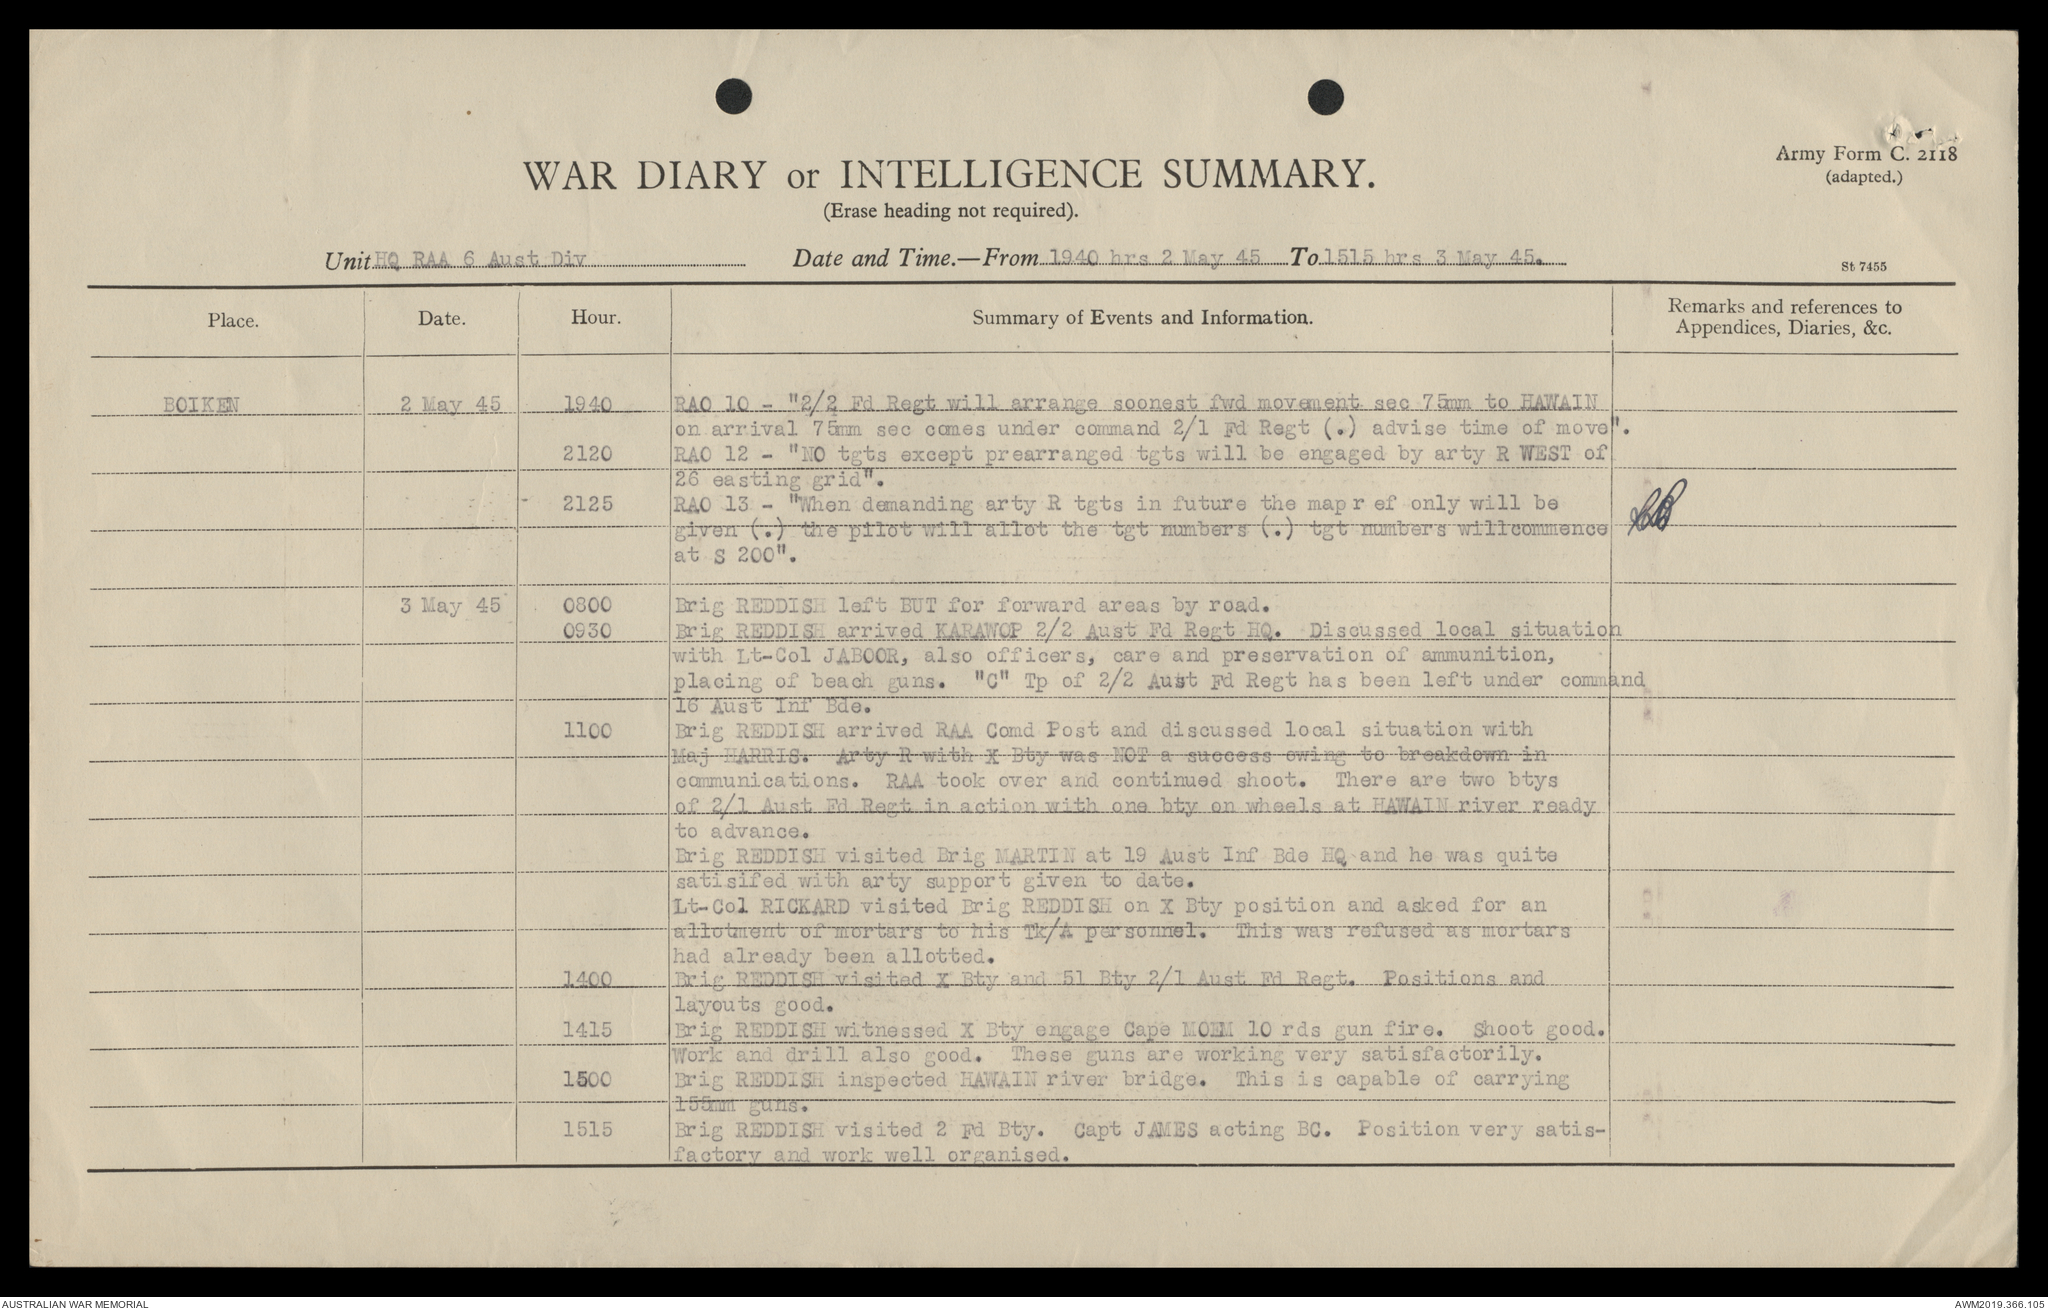 Army Form C. 2118
(adapted.)
WAR DIARY or INTELLIGENCE SUMMARY.
(Erase heading not required).
Unit HQ RAA 6 Aust Div Date and Time.—From 1940 hrs 2 May 45 To 1515 hrs 3 May 45.
St 7455
Place. Date. Hour. Summary of Events and Information. Remarks and references to
Appendices, Diaries, &c.
BOIKEN 2 May 45 1940 RAO 10 - "2/2 Fd Regt will arrange soonest fwd movement sec 75mm to HAWAIN
on arrival 75mm sec comes under command 2/1 Fd Regt (.) advise time of move".
2120 RAO 12 - "NO tgts except prearranged tgts will be engaged by arty R WEST of
26 easting grid".
2125 RAO 13 - "When demanding arty R tgts in future the map r ef only will be
given (.) the pilot will allot the tgt numbers (.) tgt numbers willcommence
at S 200".
3 May 45 0800 Brig REDDISH left BUT for forward areas by road.
0930 Brig REDDISH arrived KARAWOP 2/2 Aust Fd Regt HQ. Discussed local situation
with Lt-Col JABOOR, also officers, care and preservation of ammunition,
placing of beach guns. "C" Tp of 2/2 Aust Fd Regt has been left under command
16 Aust Inf Bde.
1100 Brig REDDISH arrived RAA Comd Post and discussed local situation with
Maj HARRIS. Arty R with X Bty was NOT a success owing to breakdown in
communications. RAA took over and continued shoot. There are two btys
of 2/1 Aust Fd Regt in action with one bty on wheels at HAWAIN river ready
to advance.
Brig REDDISH visited Brig MARTIN at 19 Aust Inf Bde HQ and he was quite
satisifed with arty support given to date.
Lt-Col RICKARD visited Brig REDDISH on X Bty position and asked for an
allotment of mortars to his Tk/A personnel. This was refused as mortars
had already been allotted.
1400 Brig REDDISH visited X Bty and 51 Bty 2/1 Aust Fd Regt. Positions and
layouts good.
1415 Brig REDDISH witnessed X Bty engage Cape MOEM 10 rds gun fire. Shoot good.
Work and drill also good. These guns are working very satisfactorily.
1500 Brig REDDISH inspected HAWAIN river bridge. This is capable of carrying
155mm guns.
1515 Brig REDDISH visited 2 Fd Bty. Capt JAMES acting BC. Position very satis-
factory and work well organised.
AUSTRALIAN WAR MEMORIAL
AWM2019.366.105